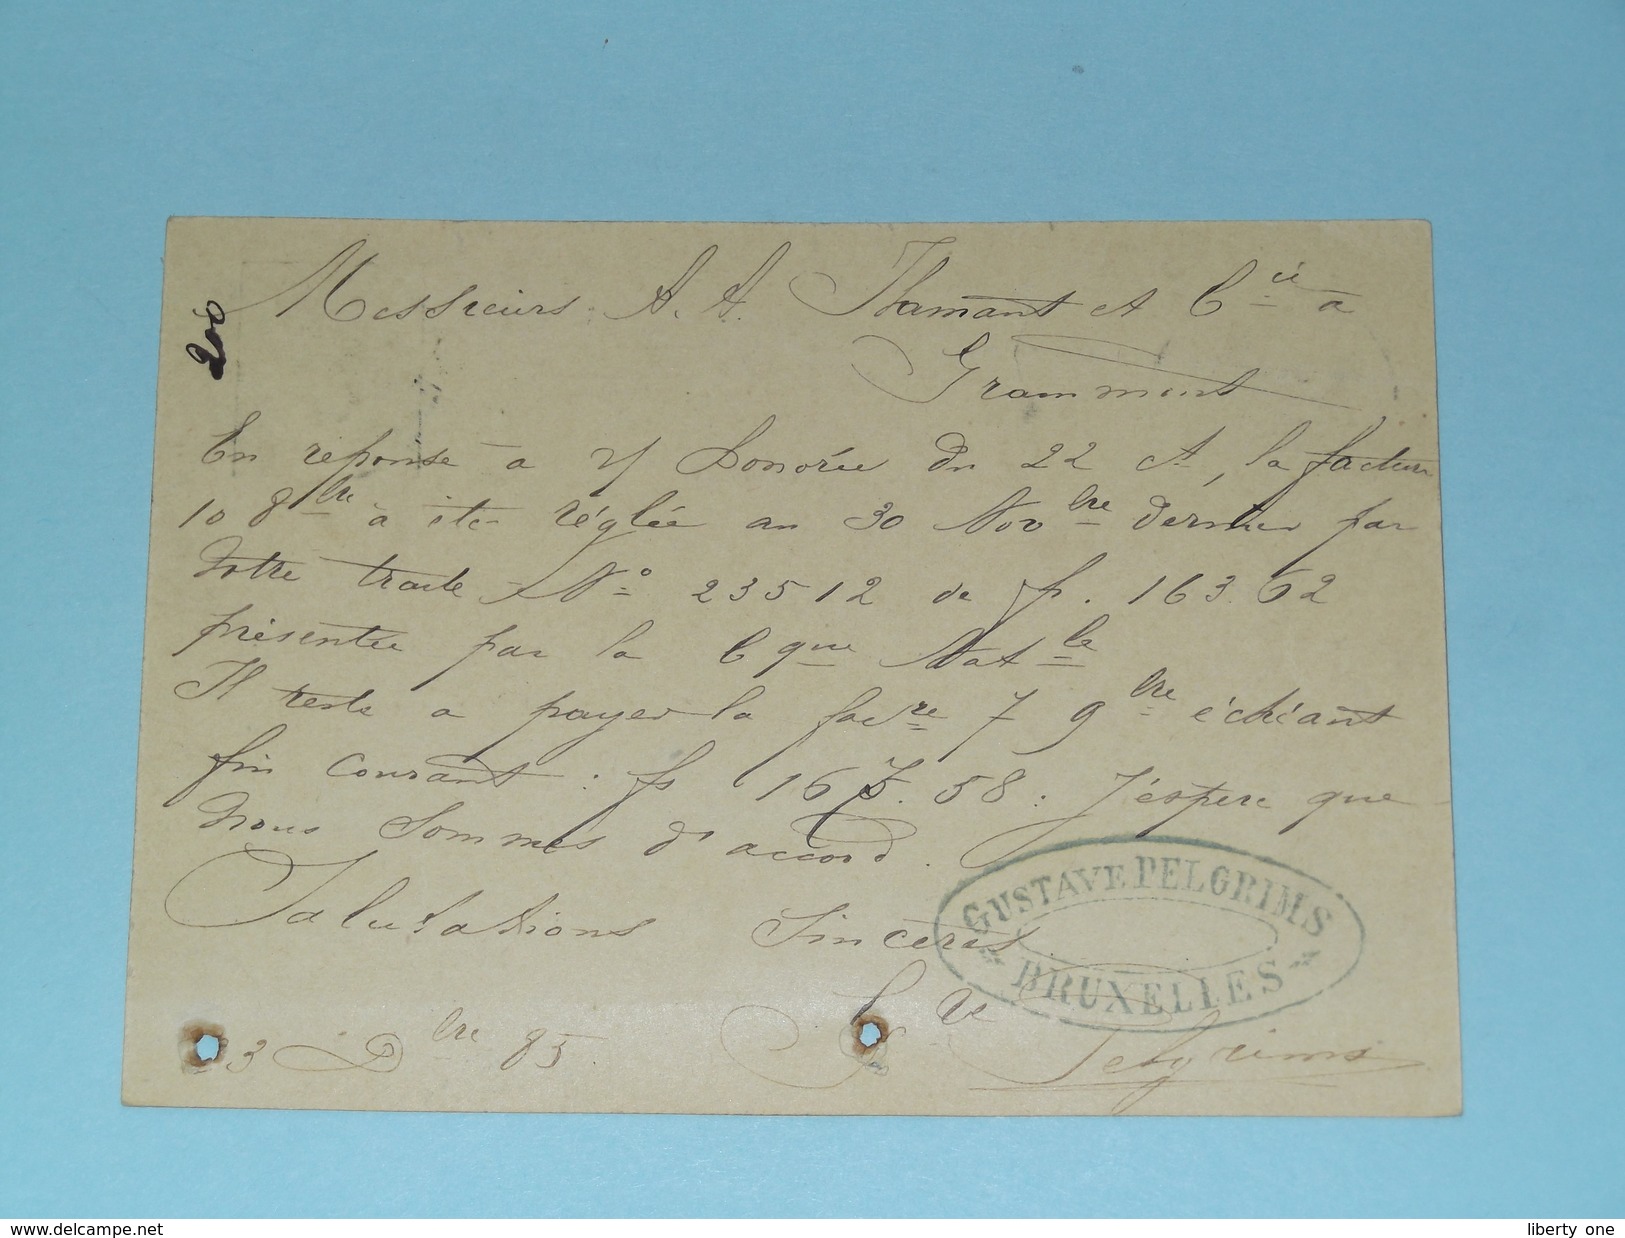 200
Messieurs A. A. Thamant et Cie à
Grammont
En réponse à v/ honorée du 22 ct, la facture
10 8bre a été réglée au 30 Novbre dernier par
votre traite No 23512 de fr. 163.62
présentée par la bque Natle
Il reste a payer la facre 7 9bre échéant
fin courant : fr 167.58. J'espère que
nous sommes d'accord.
Salutations Sincères
GUSTAVE PELGRIMS
BRUXELLES
3 Dbre 85.
Gve Pelgrims
www.delcampe.net
liberty_one